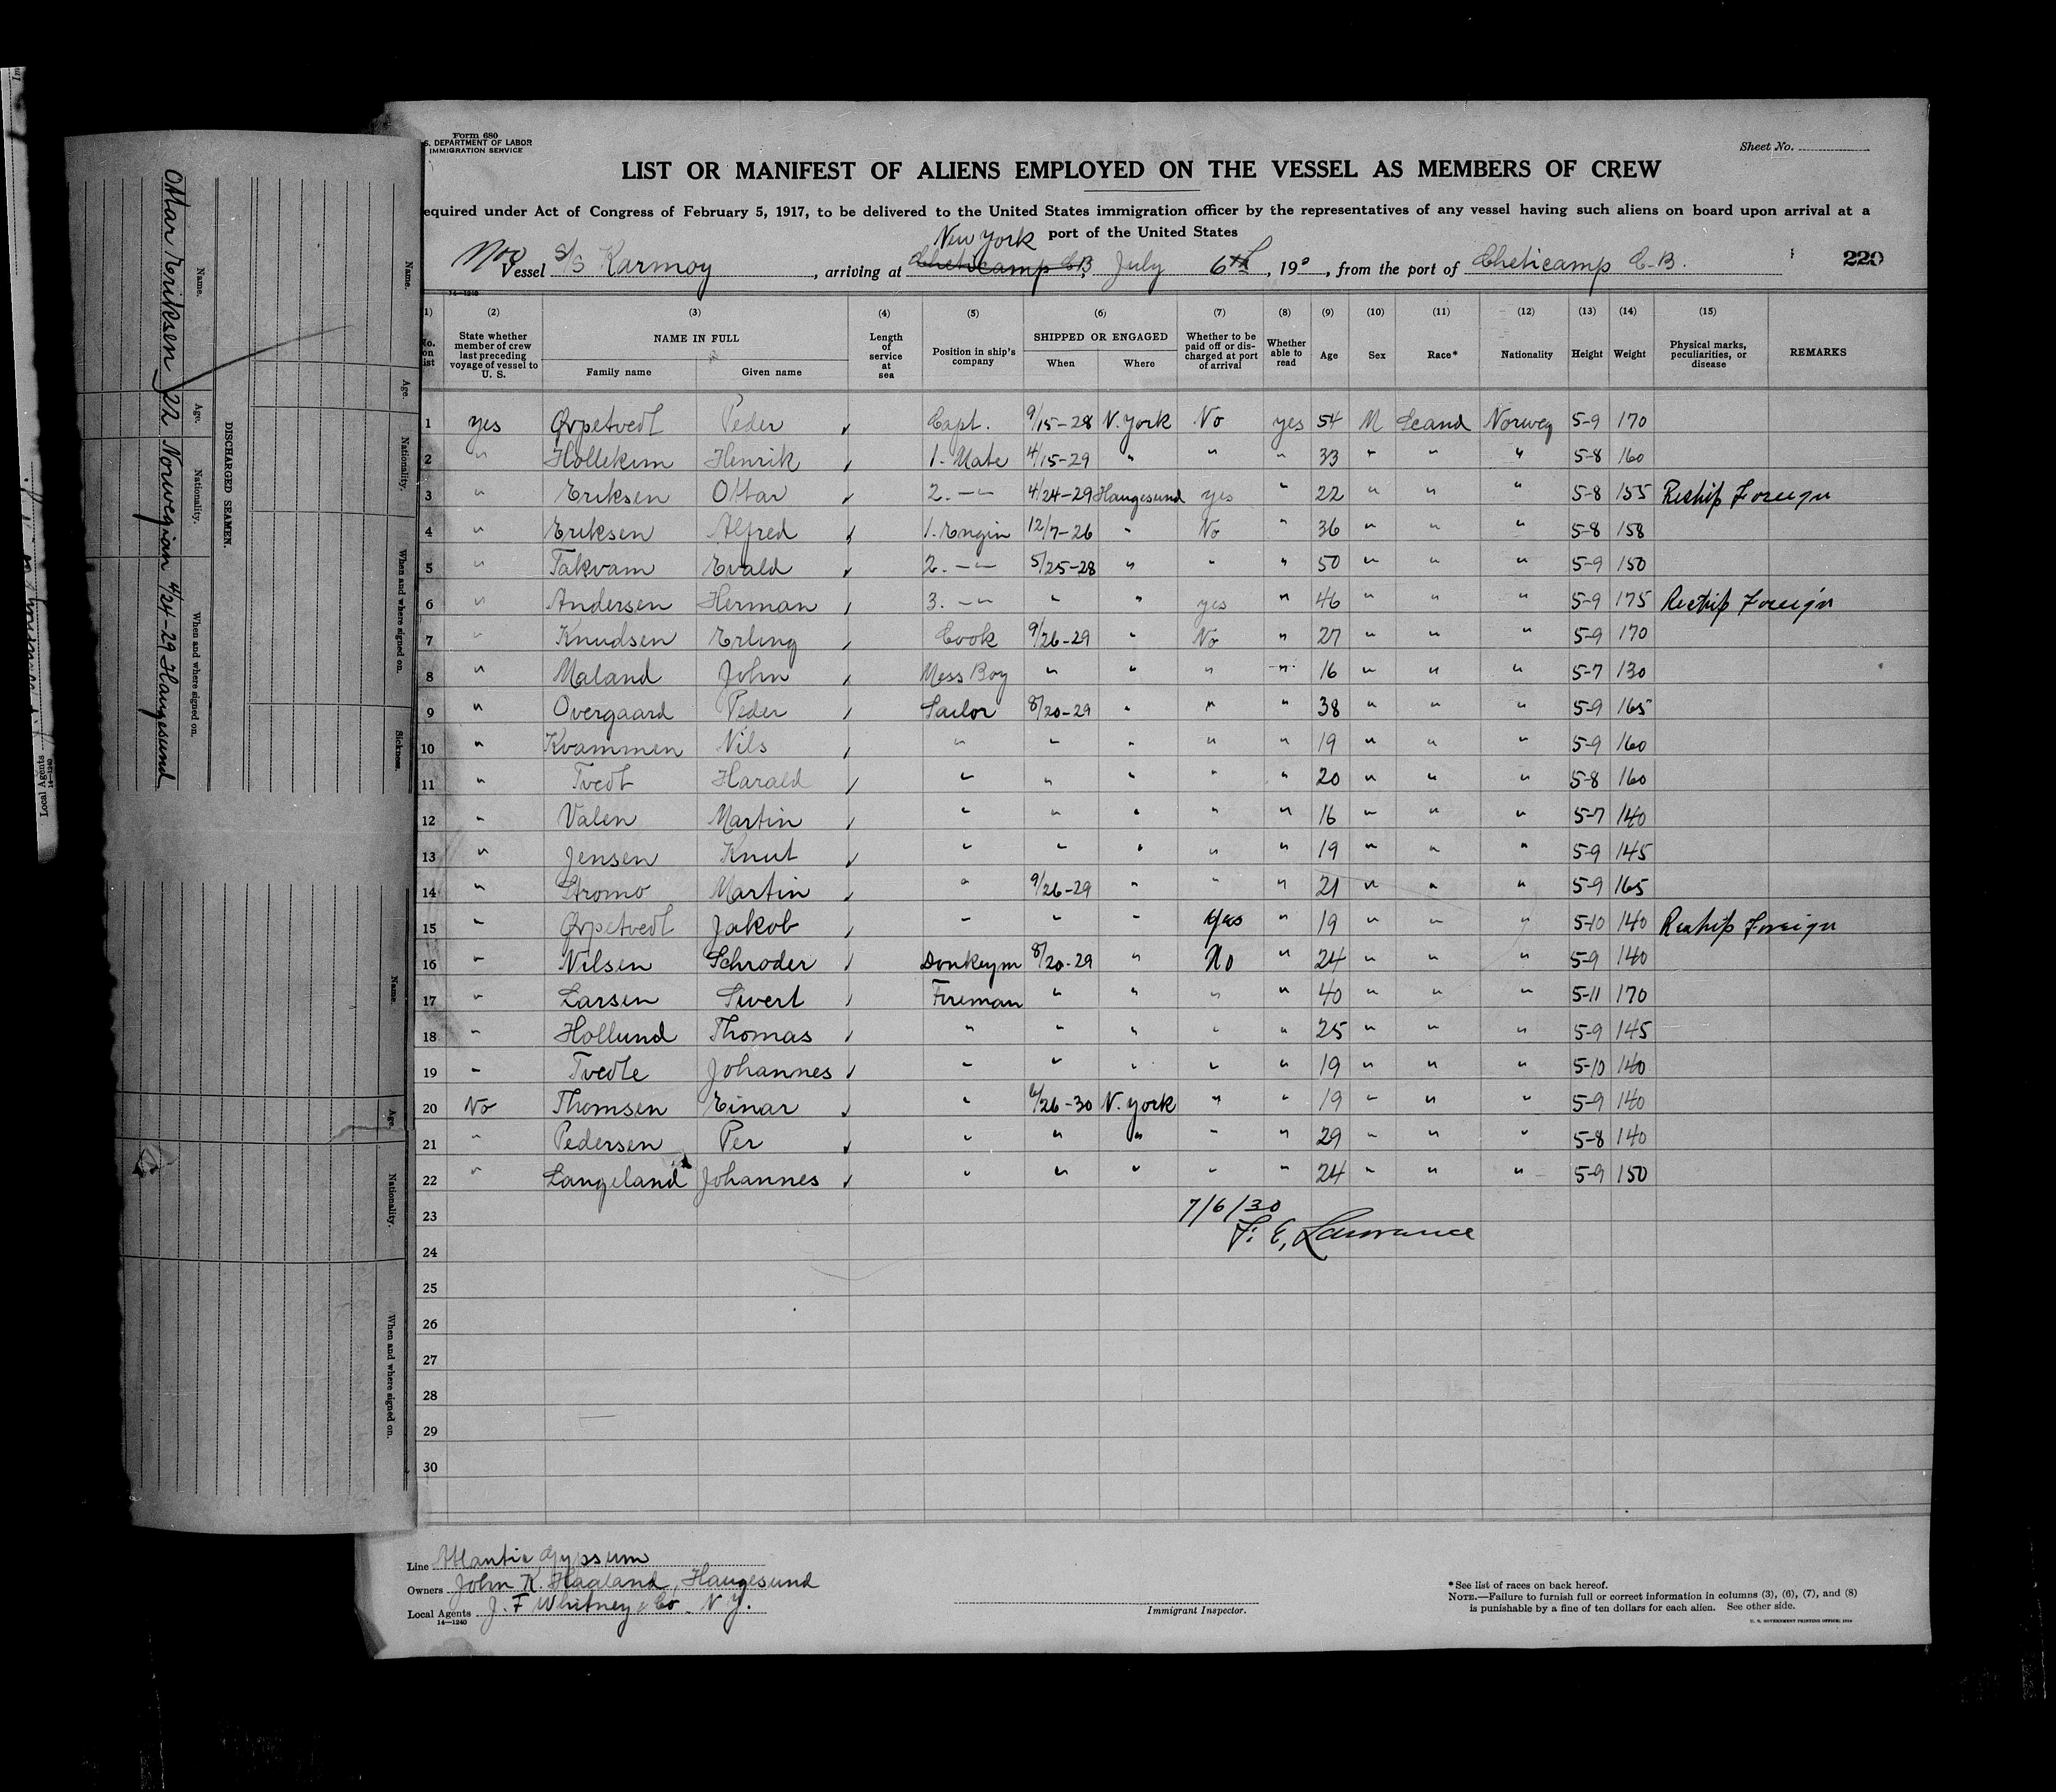 Form 680
S. DEPARTMENT OF LABOR
IMMIGRATION SERVICE
Sheet No.
LIST OR MANIFEST OF ALIENS EMPLOYED ON THE VESSEL AS MEMBERS OF CREW
equired under Act of Congress of February 5, 1917, to be delivered to the United States immigration officer by the representatives of any vessel having such aliens on board upon arrival at a
port of the United States
New York
Vessel S/S Karmoy, arriving at Cheticamp CB, July 6th, 19, from the port of Cheticamp C-B. 220
14—1240
(1) (2) (3) (4) (5) (6) (7) (8) (9) (10) (11) (12) (13) (14) (15)
No. on list State whether member of crew last preceding voyage of vessel to U. S. NAME IN FULL Length of service at sea Position in ship's company SHIPPED OR ENGAGED Whether to be paid off or discharged at port of arrival Whether able to read Age Sex Race* Nationality Height Weight Physical marks, peculiarities, or disease REMARKS
Family name Given name When Where
1 yes Qvpetvedt Peder Capt. 9/15-28 N. York No yes 54 M Scand Norweg 5-9 170
2 " Hollekim Henrik 1. Mate 4/15-29 " " " 33 " " " 5-8 160
3 " Eriksen Ottar 2. —"— 4/24-29 Haugesund yes " 22 " " " 5-8 155 Reship Foreign
4 " Eriksen Alfred 1. Engin 12/7-26 " No " 36 " " " 5-8 158
5 " Takvam Evald 2. —"— 5/25-28 " " " 50 " " " 5-9 150
6 " Andersen Herman 3. —"— " " yes " 46 " " " 5-9 175 Reship Foreign
7 " Knudsen Erling Cook 9/26-29 " No " 27 " " " 5-9 170
8 " Maland John Mess Boy " " " " 16 " " " 5-7 130
9 " Overgaard Peder Sailor 8/20-29 " " " 38 " " " 5-9 165
10 " Kvammen Nils " " " " " 19 " " " 5-9 160
11 " Tvedt Harald " " " " " 20 " " " 5-8 160
12 " Valen Martin " " " " " 16 " " " 5-7 140
13 " Jensen Knut " " " " " 19 " " " 5-9 145
14 " Stromo Martin " 9/26-29 " " " 21 " " " 5-9 165
15 " Qvpetvedt Jakob " " " Yes " 19 " " " 5-10 140 Reship Foreign
16 " Nilsen Schroder Donkeym 8/20-29 " No " 24 " " " 5-9 140
17 " Larsen Sivert Fireman " " " " 40 " " " 5-11 170
18 " Hollund Thomas " " " " " 25 " " " 5-9 145
19 " Tvedte Johannes " " " " " 19 " " " 5-10 140
20 No Thomsen Einar " 6/26-30 N. York " " 19 " " " 5-9 140
21 " Pedersen Per " " " " " 29 " " " 5-8 140
22 " Langeland Johannes " " " " " 24 " " " 5-9 150
23 7/6/30
24 F. E. Lawrance
25
26
27
28
29
30
Line Atlantic Gypsum
Owners John K. Haaland, Haugesund
Local Agents J. F Whitney & Co. N Y.
14—1240
Immigrant Inspector.
*See list of races on back hereof.
NOTE.—Failure to furnish full or correct information in columns (3), (6), (7), and (8)
is punishable by a fine of ten dollars for each alien. See other side.
U. S. GOVERNMENT PRINTING OFFICE
DISCHARGED SEAMEN.
Name. Age. Nationality. When and where signed on.
Ottar Eriksen 22 Norwegian 4/24-29 Haugesund
Name. Age. Nationality. When and where signed on. Sickness.
Name. Age. Nationality. When and where signed on.
Local Agents
14—1240